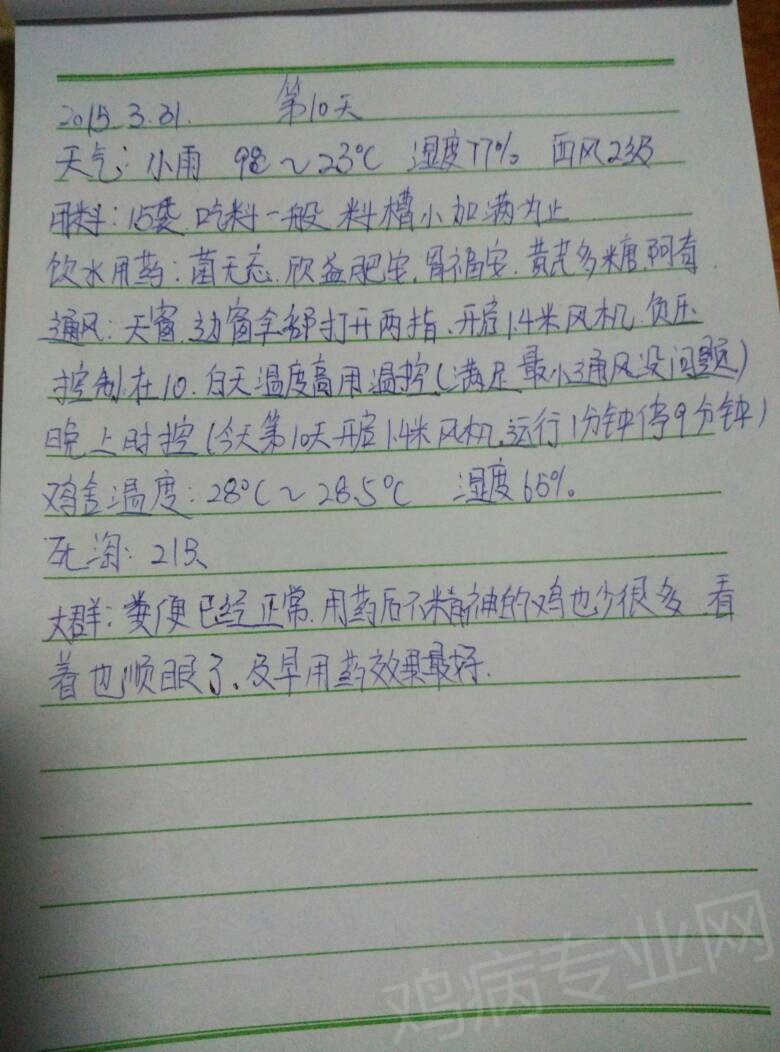 2015.3.31. 第10天
天气：小雨 9℃～23℃ 湿度77% 西风2级
用料：15袋.吃料一般 料槽小加满为止
饮水用药：菌无恋.欣益肥宝.肾福安.黄芪多糖.阿奇.
通风：天窗.边窗全部打开两指.开启1.4米风机.负压
控制在10.白天温度高用温控(满足最小通风没问题)
晚上时控(今天第10天开启1.4米风机.运行1分钟停9分钟)
鸡舍温度：28℃～28.5℃ 湿度65%.
死淘：21只
大群：粪便已经正常.用药后不精神的鸡也少很多 看
着也顺眼了、及早用药效果最好.
鸡病专业网